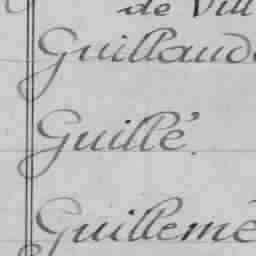 de Vill
Guillaud
Guillé.
Guillemé